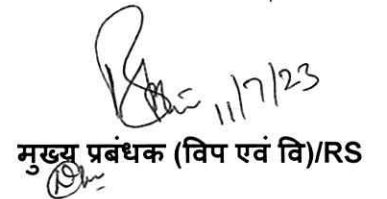 11/7/23
मुख्य प्रबंधक (विप एवं वि)/RS